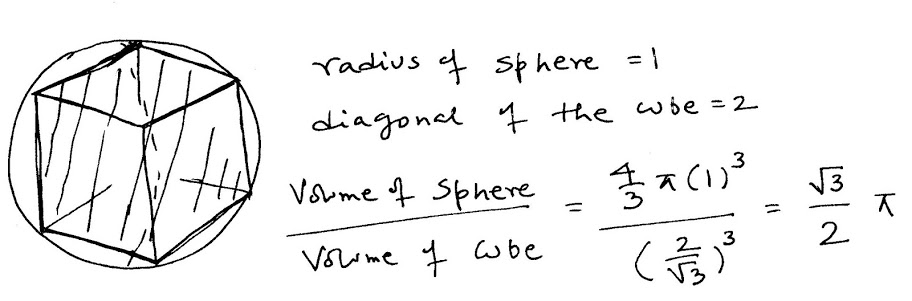 radius of sphere = 1
diagonal of the cube = 2
Volume of Sphere / Volume of cube = 4/3 π (1)³ / (2/√3)³ = √3/2 π